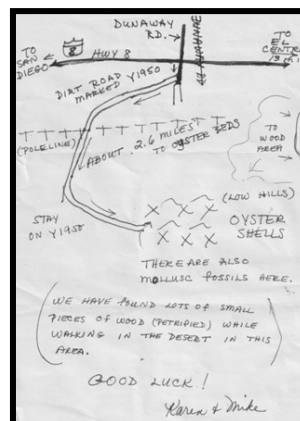 DUNAWAY
RD.
DUNAWAY RD
TO
SAN
DIEGO
8
HWY 8
TO
EL
CENTR
13 mi
DIRT ROAD
MARKED Y1950
(POLELINE)
ABOUT 2.6 MILES
TO OYSTER BEDS
TO
WOOD
AREA
STAY
ON Y1950
(LOW HILLS)
OYSTER
SHELLS
THERE ARE ALSO
MOLLUSC FOSSILS HERE.
WE HAVE FOUND LOTS OF SMALL
PIECES OF WOOD (PETRIFIED) WHILE
WALKING IN THE DESERT IN THIS
AREA.
GOOD LUCK!
Karen & Mike